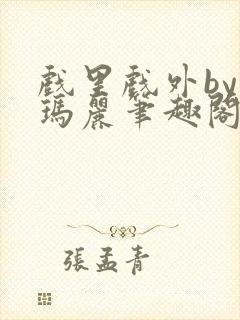 戲里戲外by
瑪麗筆趣閣
張孟青